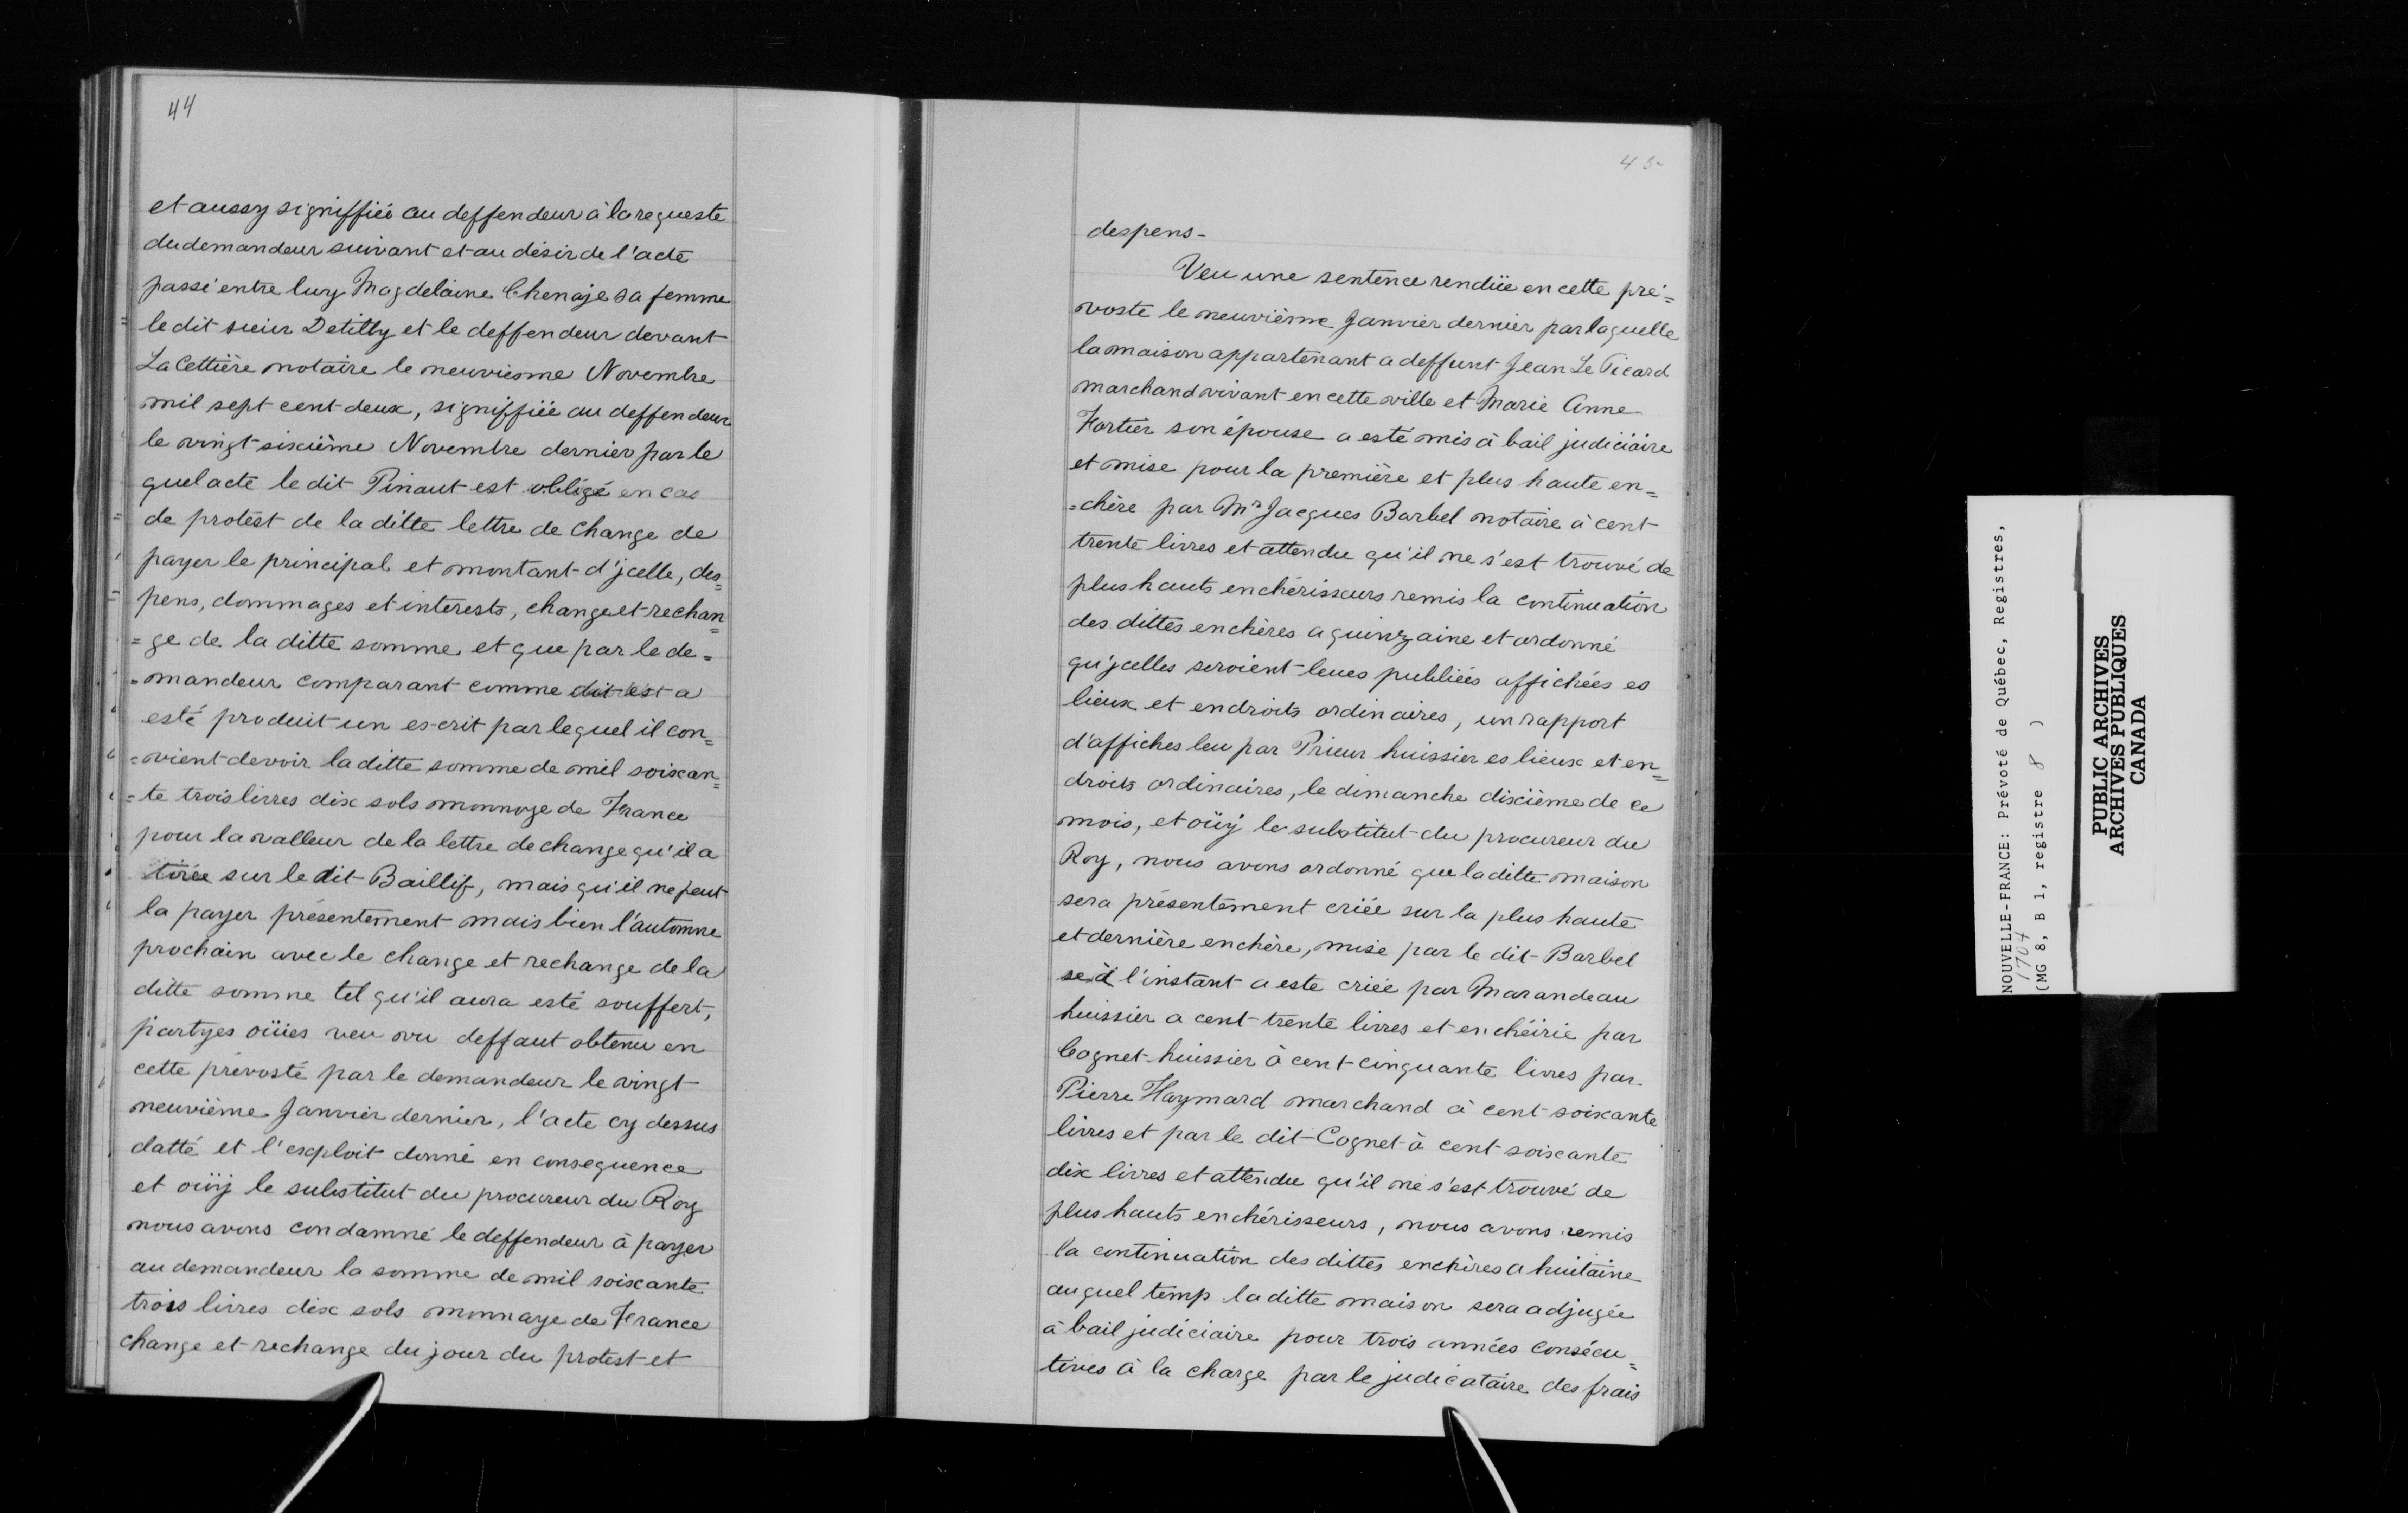 44
et aussy signiffiée au deffendeur à la requeste
du demandeur suivant et au désir de l'acte
passé entre luy Magdelaine Chenaje sa femme
= le dit sieur Detilly et le deffendeur devant
La Cettière notaire le neuviesme Novembre
mil sept cent deux, signiffiée au deffendeur
le vingt-sixième Novembre dernier par le
quel acte le dit Pinaut est obligé en cas
= de protest de la ditte lettre de change de
payer le principal et montant d'jcelle, des=
= pens, dommages et interests, change et rechan=
= ge de la ditte somme et que par le de=
= mandeur comparant comme dit est a
esté produit un escrit par lequel il con=
= vient devoir la ditte somme de mil soixan=
= te trois livres dix sols monnoye de France
pour la valleur de la lettre de change qu'il a
tirée sur le dit Baillif, mais qu'il ne peut
la payer présentement mais bien l'automne
prochain avec le change et rechange de la
ditte somme tel qu'il aura esté souffert,
partyes oüies veu vu deffaut obtenu en
cette prévosté par le demandeur le vingt
neuvième Janvier dernier, l'acte cy dessus
datté et l'exploit donné en consequence
et oüij le substitut du procureur du Roy
nous avons condamné le deffendeur à payer
au demandeur la somme de mil soixante
trois livres dix sols monnaye de France
change et rechange du jour du protest et
45
despens-
Veu une sentence rendüe en cette pré=
voste le neuvième Janvier dernier par laquelle
la maison appartenant a deffunt Jean Le Picard
marchand vivant en cette ville et Marie Anne
Fortier son épouse a esté mis à bail judiciaire
et mise pour la première et plus haute en=
=chère par Mr Jacques Barbel notaire à cent
trente livres et attendu qu'il ne s'est trouvé de
plus hauts enchérisseurs remis la continuation
des dittes enchères a quinzaine et ordonné
qu'jcelles seroient leues publiées affichées es
lieux et endroits ordinaires, un rapport
d'affiches leu par Prieur huissier es lieux et en=
droits ordinaires, le dimanche dixième de ce
mois, et oüij le substitut du procureur du
Roy, nous avons ordonné que la ditte maison
sera présentement criée sur la plus haute
et dernière enchère, mise par le dit Barbel
se à l'instant a este criée par Marandeau
huissier a cent trente livres et enchéirie par
Cognet huissier à cent cinquante livres par
Pierre Haymard marchand à cent soixante
livres et par le dit Cognet à cent soixante
dix livres et attendu qu'il ne s'est trouvé de
plus hauts enchérisseurs, nous avons remis
la continuation des dittes enchères a huitaine
auquel temp la ditte maison sera adjugée
à bail judiciaire pour trois années consécu=
tives à la charge par le judicataire des frais
NOUVELLE-FRANCE: Prévoté de Québec, Registres,
1704
(MG 8, B 1, registre 8 )
PUBLIC ARCHIVES
ARCHIVES PUBLIQUES
CANADA